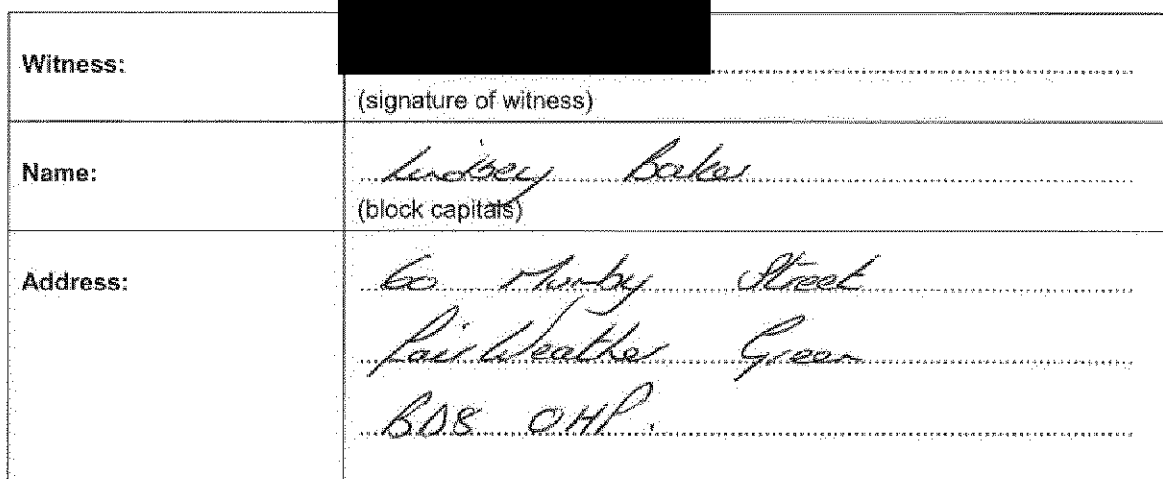 Witness:
(signature of witness)
Name:
Lindsey Baker
(block capitals)
Address:
60 Munby Street
Fairweather Green
BD8 0HP.